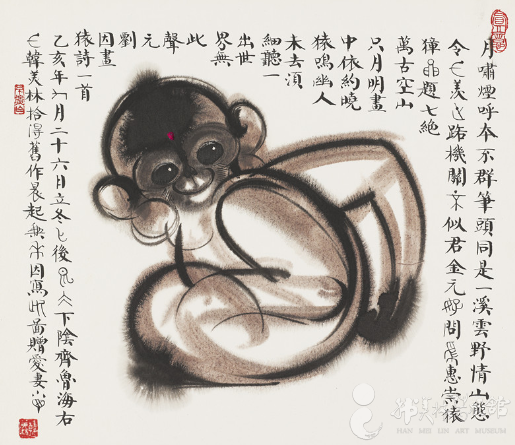 月嘯煙呼本不群筆頭同是一溪雲野情山態
令美踏機關不似君金元好問惠崇猿
獐題七絕
萬古空山
只月明畫
中依約曉
猿鳴幽人
未去須
細聽一
出世
界無
此
聲
元
劉
因畫
猿詩一首
乙亥年月二十六日立冬後下陰齊魯海右
韓美林拾得舊作晨起因寫贈愛妻
HAN MEI LIN ART MUSEUM